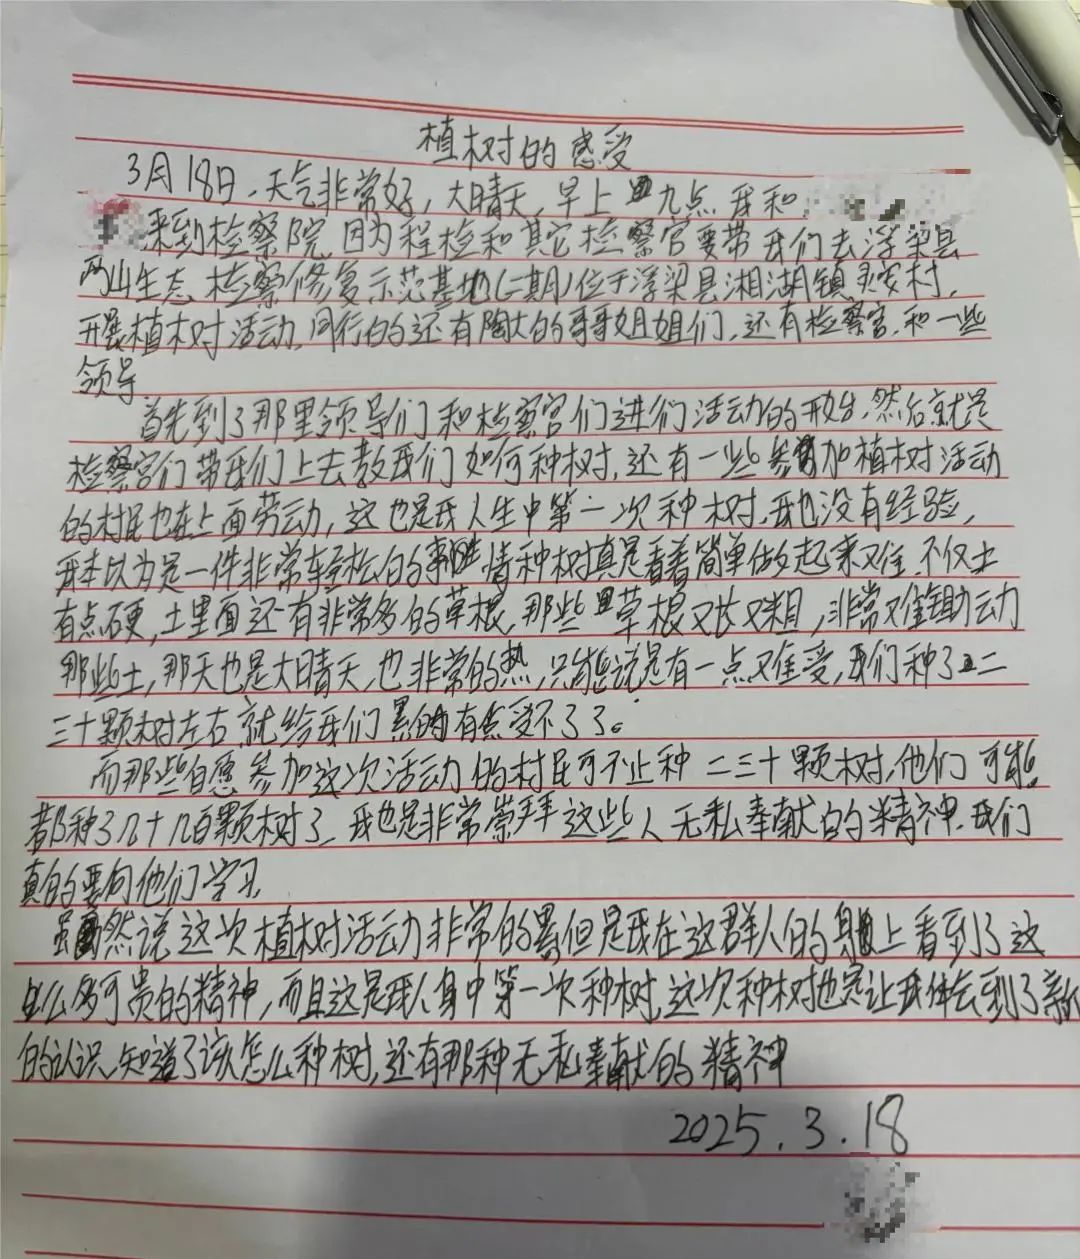 植树的感受
3月18日,天气非常好,大晴天,早上九点我和
来到检察院,因为程检和其它检察官要带我们去浮梁县
两山生态检察修复示范基地(二期)位于浮梁县湘湖镇灵安村,
开展植树活动,同行的还有陶大的哥哥姐姐们,还有检察官,和一些
领导
首先到了那里领导们和检察官们进们活动的开始,然后就是
检察官们带我们上去教我们如何种树,还有一些参加植树活动
的村民也在上面劳动,这也是我人生中第一次种树,我也没有经验,
我本以为是一件非常轻松的事情种树真是看着简单做起来难 不仅土
有点硬,土里面还有非常多的草根,那些草根又长又粗,非常难锄动
那些土,那天也是大晴天,也非常的热,只能说是有一点难受,我们种了二
三十颗树左右就给我们累的有点受不了了。
而那些自愿参加这次活动的村民可不止种二三十颗树,他们可能
都种了几十几百颗树了,我也是非常崇拜这些人无私奉献的精神,我们
真的要向他们学习,
虽然说这次植树活动非常的累但是我在这群人的身上看到了这
么多可贵的精神,而且这是我人身中第一次种树,这次种树也是让我体会到了新
的认识,知道了该怎么种树,还有那种无私奉献的精神
2025.3.18